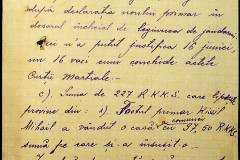 după declarația noului primar în
dosarul încheiat de legiunea de jandarmi.
Deci n'a putut justifica 16 junci,
nu 16 vaci cum conchide actele
Curții Marțiale.
c). Suma de 227 R.K.K.S. care
provine din: 1) Fostul primar
comunei
Mihail a vândut o casă cu 57,50 R.K.K.S
sumă pe care și-a însușit-o